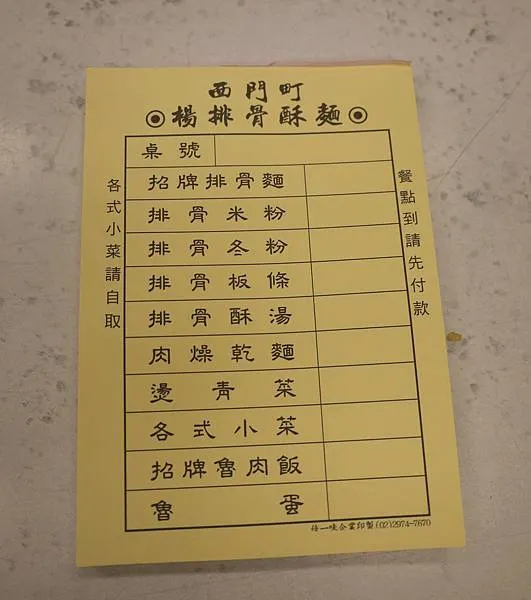 西門町
楊排骨酥麵
桌號
招牌排骨麵
排骨米粉
排骨冬粉
排骨板條
排骨酥湯
肉燥乾麵
燙青菜
各式小菜
招牌魯肉飯
魯蛋
各式小菜請自取
餐點到請先付款
一哇企業印製(02)2974-7670